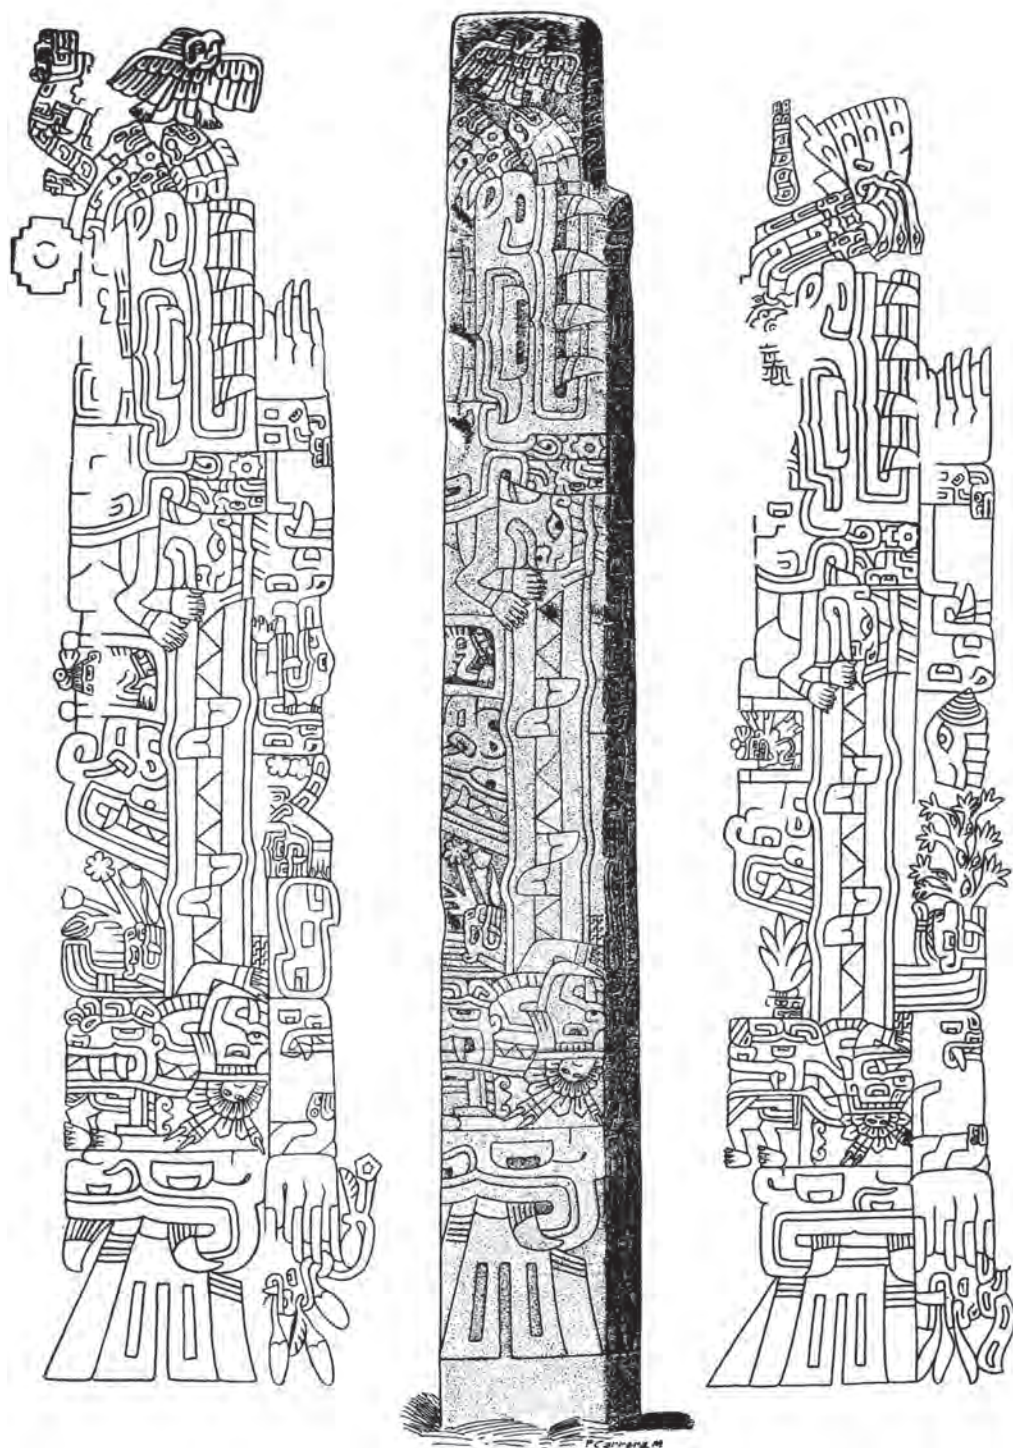 P Carrera M